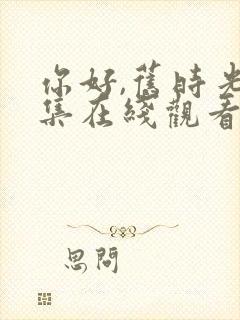 你好,舊時光
集在綫觀看
思問